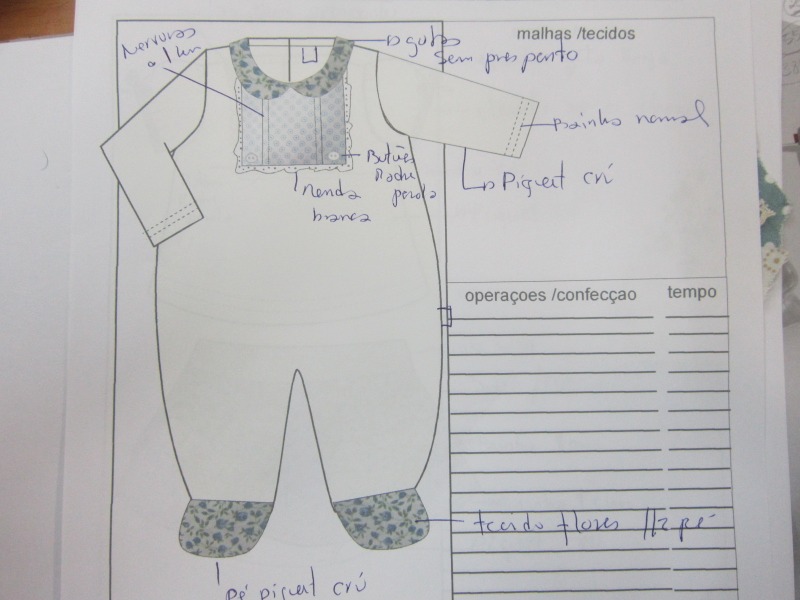 malhas /tecidos
Nervuras
a 1 cm
gola
sem presponto
Bainha normal
Botões
Madre
perola
Piquet crú
Renda
branca
operaçoes /confecçao
tempo
tecido flores 1/2 pé
Pé piquet crú